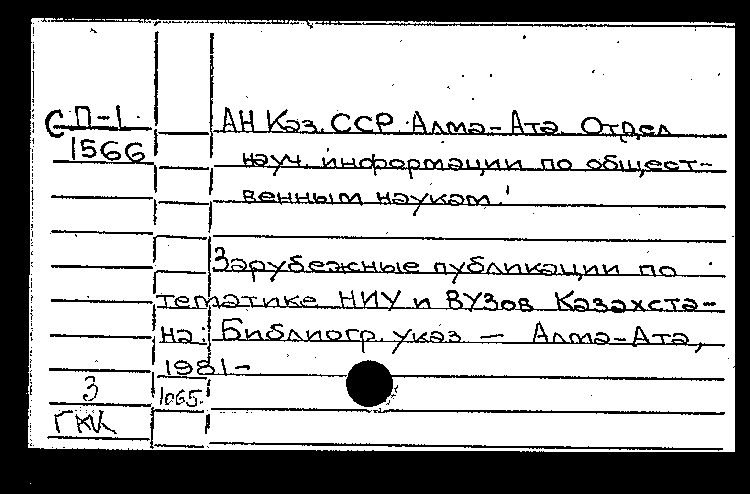 СП-1 АН Каз. ССР. Алма-Ата. Отдел
1566 науч. информации по общест-
венным наукам.
Зарубежные публикации по
тематике НИУ и ВУЗов Казахста-
на: Библиогр. указ. — Алма-Ата,
1981-
3 1065.
ГКК